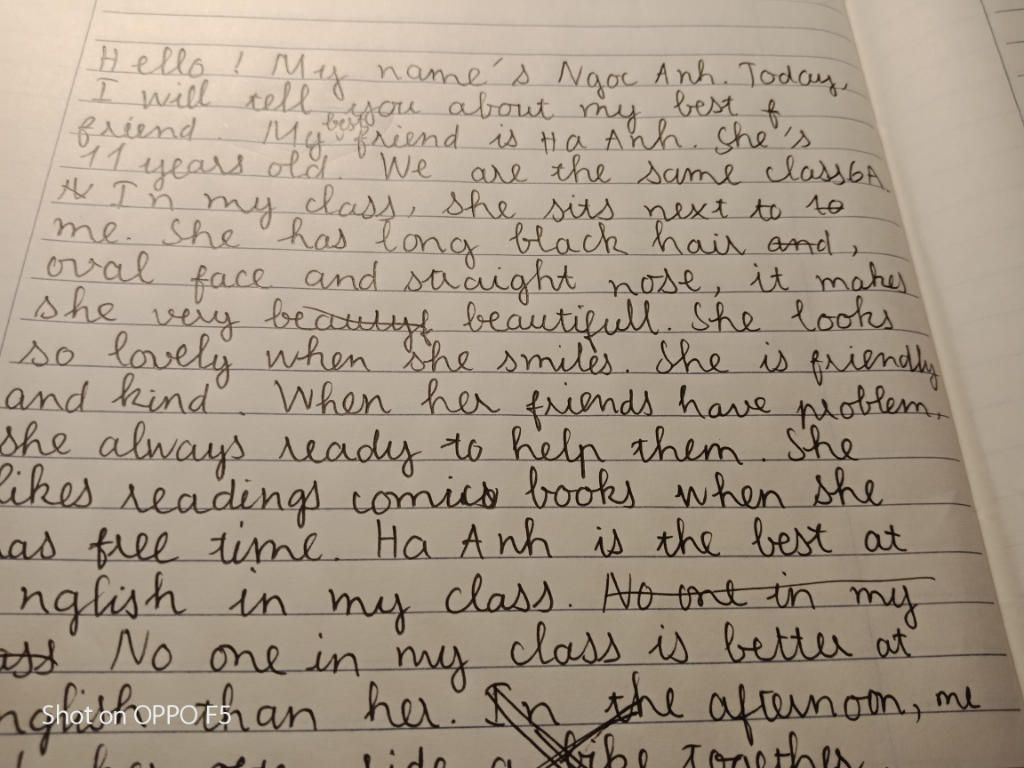 Hello! My name's Ngoc Anh. Today,
I will tell you about my best f
friend. My best friend is Ha Anh. She's
11 years old. We are the same class 6A.
In my class, she sits next to to
me. She has long black hair and,
oval face and straight nose, it makes
she very beautyf beautifull. She looks
so lovely when she smiles. She is friendly
and kind. When her friends have problem,
she always ready to help them. She
likes readings comics books when she
as free time. Ha Anh is the best at
nglish in my class. No one in my
ass No one in my class is better at
nglish than her. In the afternoon, me
ride a bike together.
Shot on OPPO F5